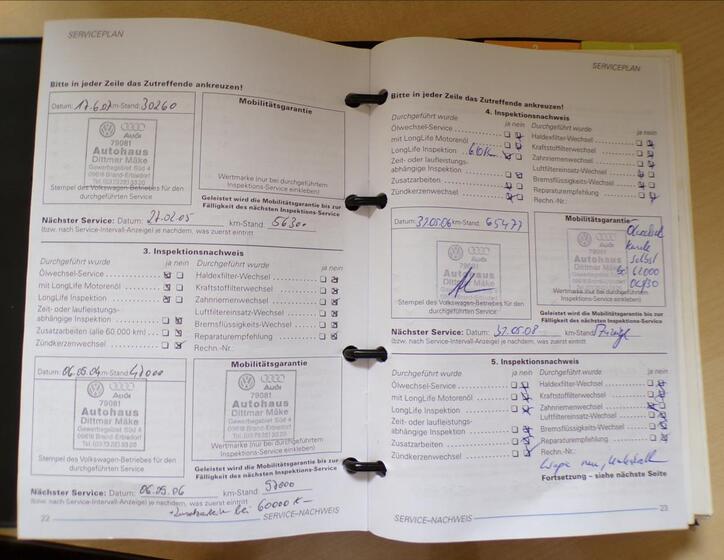 SERVICEPLAN
Bitte in jeder Zeile das Zutreffende ankreuzen!
Datum: km-Stand: 30260
79081
Audi
Autohaus
Dittmar Mäke
Gewerbegebiet Süd 4
09618 Brand-Erbisdorf
Stempel des Volkswagen-Betriebes für den
durchgeführten Service
Mobilitätsgarantie
Wertmarke (nur bei durchgeführtem
Inspektions-Service einkleben)
Geleistet wird die Mobilitätsgarantie bis zur
Fälligkeit des nächsten Inspektions-Service
Nächster Service: Datum: 27.02.05 km-Stand: 56300
(bzw. nach Service-Intervall-Anzeige) je nachdem, was zuerst eintritt
3. Inspektionsnachweis
Durchgeführt wurde ja nein
Ölwechsel-Service
mit LongLife Motorenöl
LongLife Inspektion
Zeit- oder laufleistungs-
abhängige Inspektion
Zusatzarbeiten (alle 60.000 km)
Zündkerzenwechsel
Durchgeführt wurde ja nein
Haldexfilter-Wechsel
Kraftstoffilterwechsel
Zahnriemenwechsel
Luftfiltereinsatz-Wechsel
Bremsflüssigkeits-Wechsel
Reparaturempfehlung
Rechn.-Nr.:
Datum: 06.05.04 km-Stand:
79081
Audi
Autohaus
Dittmar Mäke
Gewerbegebiet Süd 4
09618 Brand-Erbisdorf
Stempel des Volkswagen-Betriebes für den
durchgeführten Service
Mobilitätsgarantie
79081
Audi
Autohaus
Dittmar Mäke
Gewerbegebiet Süd 4
09618 Brand-Erbisdorf
Wertmarke (nur bei durchgeführtem
Inspektions-Service einkleben)
Geleistet wird die Mobilitätsgarantie bis zur
Fälligkeit des nächsten Inspektions-Service
Nächster Service: Datum: 06.05.06 km-Stand:
(bzw. nach Service-Intervall-Anzeige) je nachdem, was zuerst eintritt
bei 60000 K
22 SERVICE–NACHWEIS
SERVICEPLAN
Bitte in jeder Zeile das Zutreffende ankreuzen!
4. Inspektionsnachweis
Durchgeführt wurde ja nein
Ölwechsel-Service
mit LongLife Motorenöl
LongLife Inspektion
Zeit- oder laufleistungs-
abhängige Inspektion
Zusatzarbeiten
Zündkerzenwechsel
Durchgeführt wurde ja nein
Haldexfilter-Wechsel
Kraftstoffilterwechsel
Zahnriemenwechsel
Luftfiltereinsatz-Wechsel
Bremsflüssigkeits-Wechsel
Reparaturempfehlung
Rechn.-Nr.:
Datum: 31.05.06 km-Stand: 65477
Stempel des Volkswagen-Betriebes für den
durchgeführten Service
Mobilitätsgarantie
Ölwechsel
Kunde
selbst
bei 61.000
Wertmarke (nur bei durchgeführtem
Inspektions-Service einkleben)
Geleistet wird die Mobilitätsgarantie bis zur
Fälligkeit des nächsten Inspektions-Service
Nächster Service: Datum: 31.05.08 km-Stand:
(bzw. nach Service-Intervall-Anzeige) je nachdem, was zuerst eintritt
5. Inspektionsnachweis
Durchgeführt wurde ja nein
Ölwechsel-Service
mit LongLife Motorenöl
LongLife Inspektion
Zeit- oder laufleistungs-
abhängige Inspektion
Zusatzarbeiten
Zündkerzenwechsel
Durchgeführt wurde ja nein
Haldexfilter-Wechsel
Kraftstoffilterwechsel
Zahnriemenwechsel
Luftfiltereinsatz-Wechsel
Bremsflüssigkeits-Wechsel
Reparaturempfehlung
Rechn.-Nr.:
Fortsetzung – siehe nächste Seite
SERVICE–NACHWEIS 23